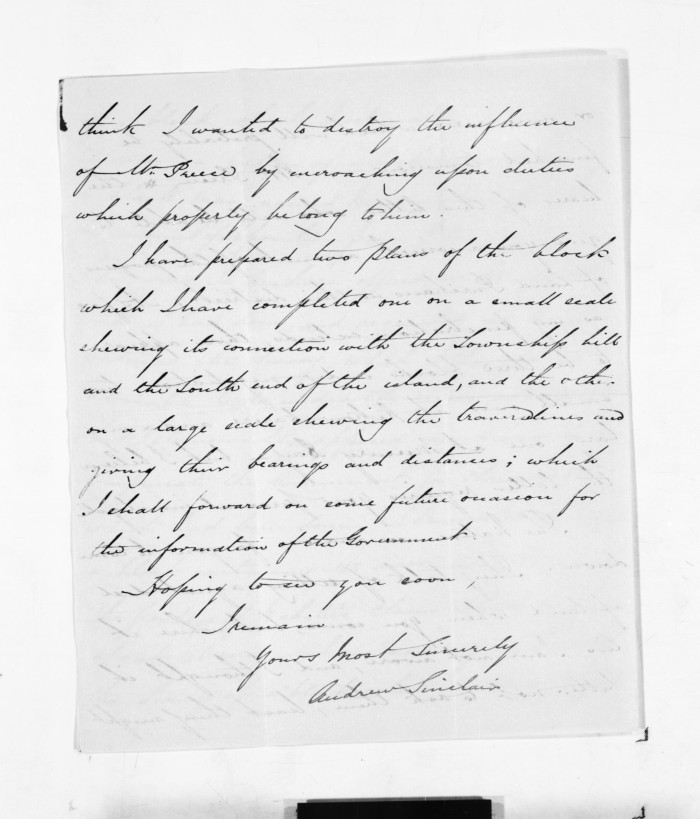 think I wanted to destroy the influence
of Mr. Preece by encroaching upon duties
which properly belong to him.
I have prepared two plans of the block
which I have completed one on a small scale
shewing its connection with the Township hill
and the South end of the island, and the othe.
on a large scale shewing the traversed lines and
giving their bearings and distances; which
I shall forward on some future occasion for
the information of the Government
Hoping to see you soon,
I remain
Yours Most Sincerely
Andrew Sinclair